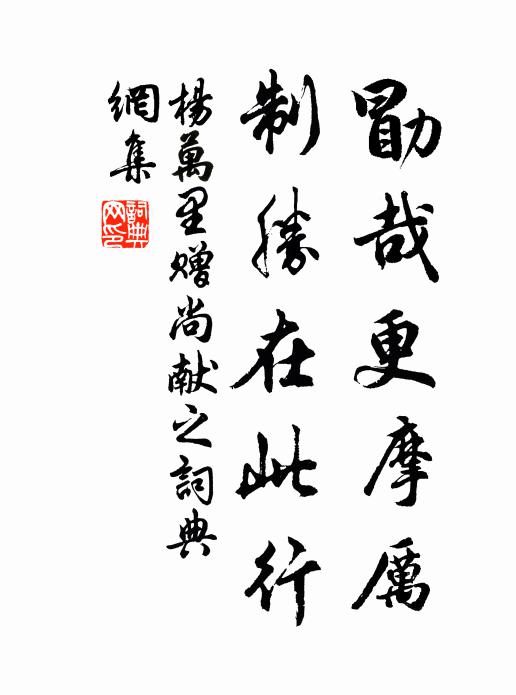 勖哉更摩厲
制勝在此行
楊萬里贈尚献之詞典
網集
詞典
网印